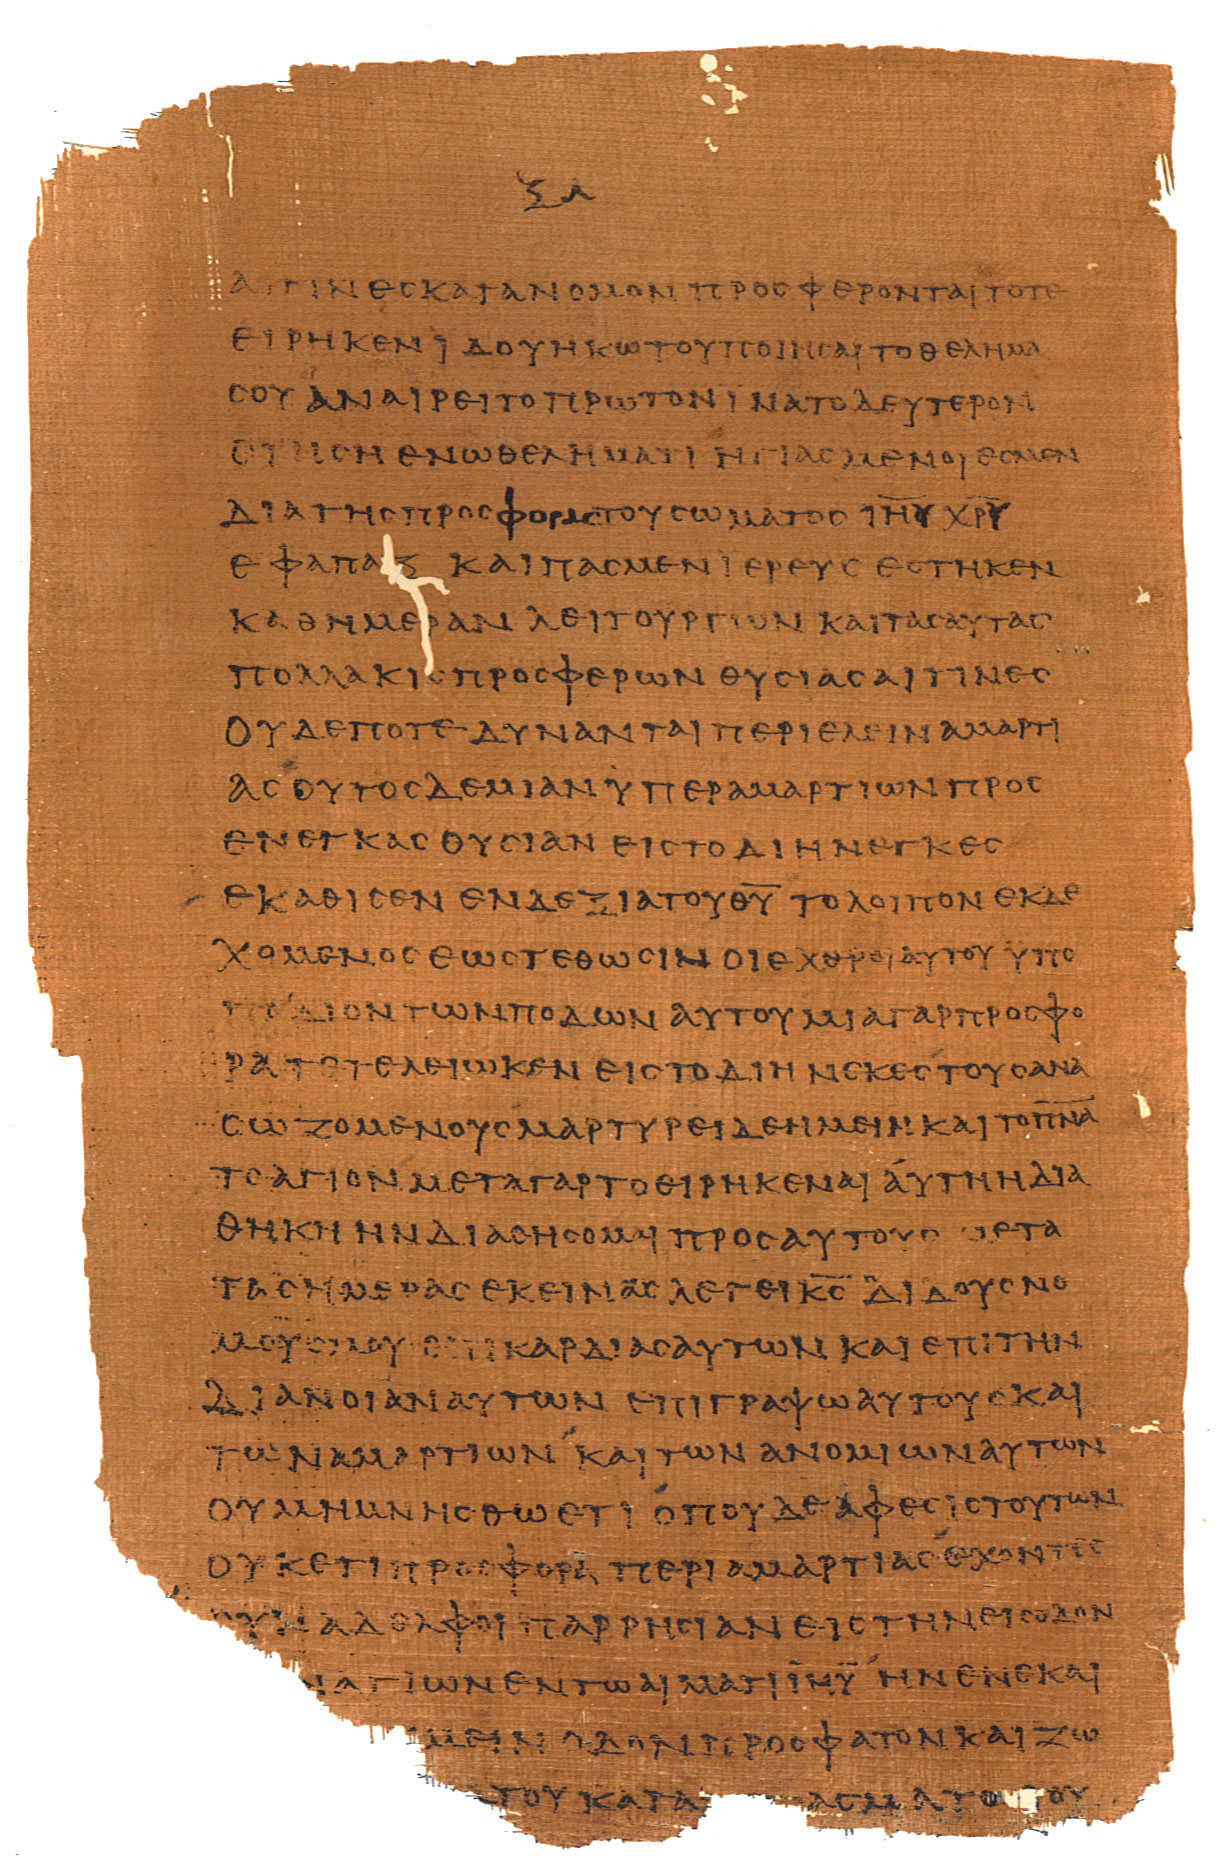 ξα
αιτινες κατα νομον προσφερονται τοτε
ειρηκεν ιδου ηκω του ποιησαι το θελημα
σου αναιρει το πρωτον ϊνα το δευτερον
στηση εν ω θεληματι ηγιασμενοι εσμεν
δια της προσφορας του σωματος ιηυ χρυ
εφαπαξ και πας μεν ϊερευς εστηκεν
καθ ημεραν λειτουργων και τας αυτας
πολλακις προσφερων θυσιας αιτινες
ουδεποτε δυνανται περιελειν αμαρτι
ας ουτος δε μιαν ϋπερ αμαρτιων προς
ενεγκας θυσιαν εις το διηνεγκες
εκαθισεν εν δεξια του θυ το λοιπον εκδε
χομενος εως τεθωσιν οι εχθροι αυτου ϋπο
ποδιον των ποδων αυτου μια γαρ προσφο
ρα τετελειωκεν εις το διηνεκες τους ανα
σωζομενους μαρτυρει δε ημειν και το πνα
το αγιον μετα γαρ το ειρηκεναι αυτη η δια
θηκη ην διαθησομαι προς αυτους μετα
τας ημερας εκεινας λεγει κς διδους νο
μους μου επι καρδιας αυτων και επι την
διανοιαν αυτων επιγραψω αυτους και
των αμαρτιων και των ανομιων αυτων
ου μη μνησθω ετι οπου δε αφεσις τουτων
ουκετι προσφορα περι αμαρτιας εχοντες
ουν αδελφοι παρρησιαν εις την εισοδον
ν αγιων εν τω αιματι ιηυ ην ενεκαι
μειν οδον προσφατον και ζω
του κατα ασματος του